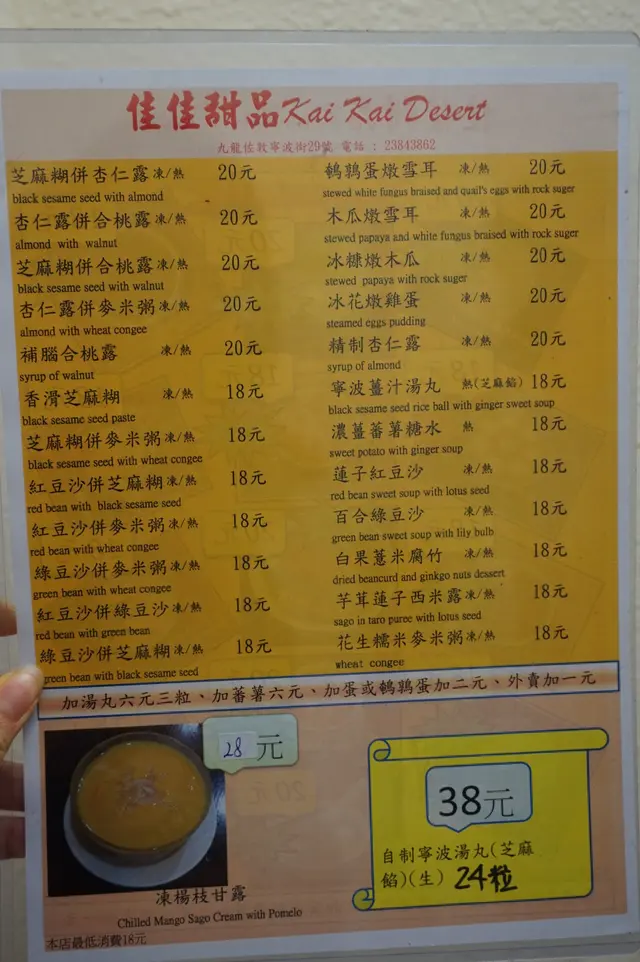 佳佳甜品Kai Kai Desert
九龍佐敦寧波街29號 電話 : 23843862
芝麻糊併杏仁露 凍/熱 20元
black sesame seed with almond
杏仁露併合桃露 凍/熱 20元
almond with walnut
芝麻糊併合桃露 凍/熱 20元
black sesame seed with walnut
杏仁露併麥米粥 凍/熱 20元
almond with wheat congee
補腦合桃露 凍/熱 20元
syrup of walnut
香滑芝麻糊 凍/熱 18元
black sesame seed paste
芝麻糊併麥米粥 凍/熱 18元
black sesame seed with wheat congee
紅豆沙併芝麻糊 凍/熱 18元
red bean with black sesame seed
紅豆沙併麥米粥 凍/熱 18元
red bean with wheat congee
綠豆沙併麥米粥 凍/熱 18元
green bean with wheat congee
紅豆沙併綠豆沙 凍/熱 18元
red bean with green bean
綠豆沙併芝麻糊 凍/熱 18元
green bean with black sesame seed
鵪鶉蛋燉雪耳 凍/熱 20元
stewed white fungus braised and quail's eggs with rock suger
木瓜燉雪耳 凍/熱 20元
stewed papaya and white fungus braised with rock suger
冰糠燉木瓜 凍/熱 20元
stewed papaya with rock suger
冰花燉雞蛋 凍/熱 20元
steamed eggs pudding
精制杏仁露 凍/熱 20元
syrup of almond
寧波薑汁湯丸 熱(芝麻餡) 18元
black sesame seed rice ball with ginger sweet soup
濃薑蕃薯糖水 熱 18元
sweet potato with ginger soup
蓮子紅豆沙 凍/熱 18元
red bean sweet soup with lotus seed
百合綠豆沙 凍/熱 18元
green bean sweet soup with lily bulb
白果薏米腐竹 凍/熱 18元
dried beancurd and ginkgo nuts dessert
芋茸蓮子西米露 凍/熱 18元
sago in taro puree with lotus seed
花生糯米麥米粥 凍/熱 18元
wheat congee
加湯丸六元三粒、加蕃薯六元、加蛋或鵪鶉蛋加二元、外賣加一元
28元
凍楊枝甘露
Chilled Mango Sago Cream with Pomelo
本店最低消費18元
38元
自制寧波湯丸(芝麻
餡)(生) 24粒